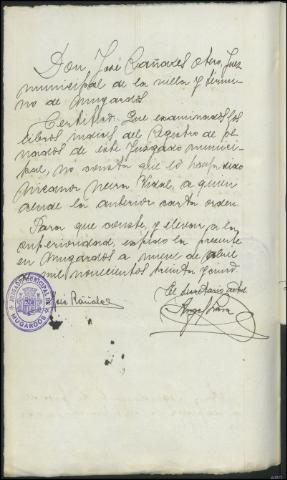 Don José Rañales Otero, Juez
municipal de la villa y térmi-
no de Mugardos
Certifico: Que examinados los
libros indices del Registro de pe-
nados de este Juzgado munici-
pal, no consta que lo haya sido
Nicanor Neira Vidal, a quien
alude la anterior carta orden.
Para que conste, y elevar a la
superioridad, expido la presente
en Mugardos a nueve de abril
mil novecientos treinta y cinco
El secretario
José Rañales
JUZGADO MUNICIPAL DE
MUGARDOS